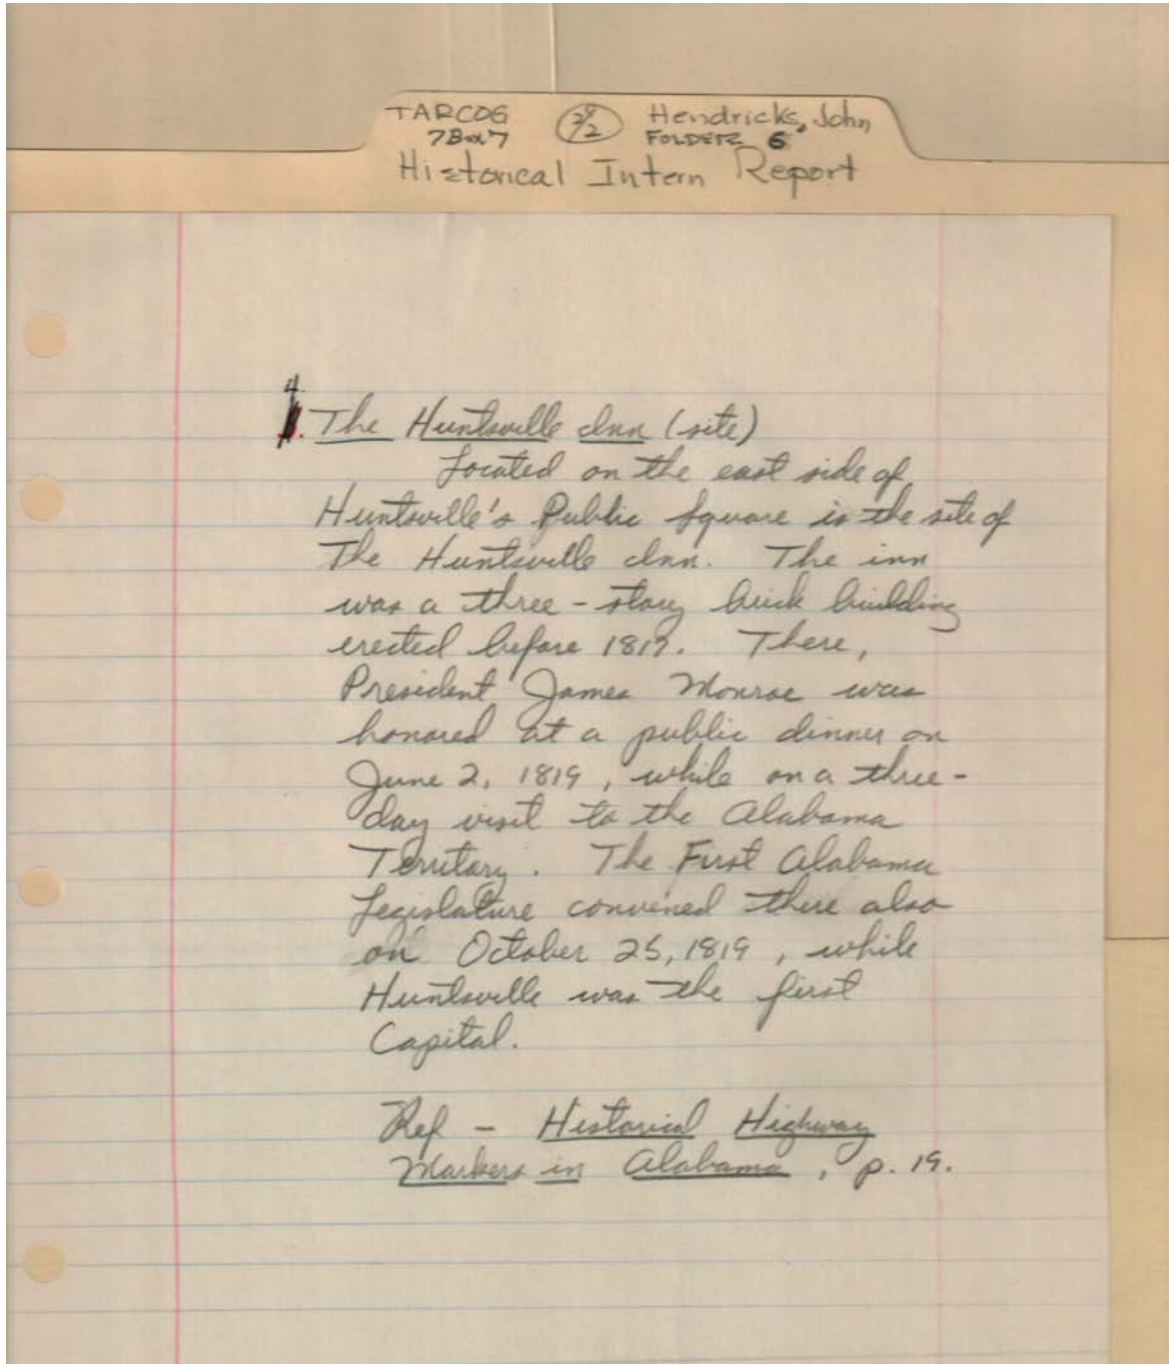 TARCOG Hendricks, John
7Box7 FOLDER 6
Historical Intern Report
4.
The Huntsville Inn (site)
Located on the east side of
Huntsville's Public Square is the site of
The Huntsville Inn. The inn
was a three-story brick building
erected before 1819. There,
President James Monroe was
honored at a public dinner on
June 2, 1819, while on a three-
day visit to the Alabama
Territory. The First Alabama
Legislature convened there also
on October 25, 1819, while
Huntsville was the first
Capital.
Ref - Historical Highway
Markers in Alabama, p. 19.